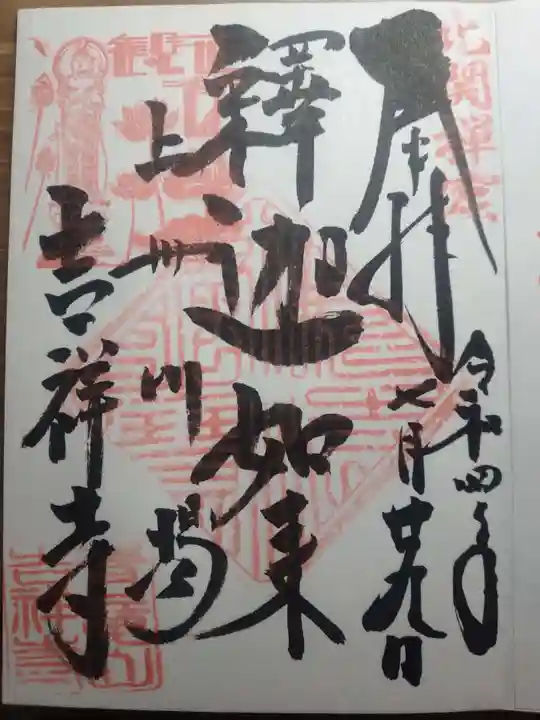 奉拝
令和四年
七月廿九日
釋迦如来
上州川場
吉祥寺